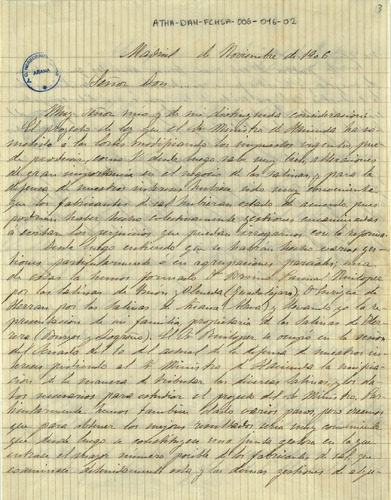 3
ATHA-DAH-FCHSA-006-016-02
Madrid de Noviembre de 1906
Señor Don
Muy Señor mio y de mi distinguida consideracion:
El proyecto de ley que el Sr. Ministro de Hacienda ha so-
metido a las Cortes modificando los impuestos vigentes, puede
producir, como V. desde luego sabe muy bien, alteraciones
de gran importancia en el negocio de las Salinas, y para la
defensa de nuestros intereses hubiera sido muy conveniente
que los fabricantes de sal hubieran estado de acuerdo pues
podrian haber hecho colectivamente gestiones encaminadas
a evitar los perjuicios que puedan irrogarnos con la
Desde luego entiendo que se habrán hecho varias ges-
tiones particularmente o en agrupaciones parciales, una
de estas la hemos formado D.
por las Salinas de Imon y Olmeda (Guadalajara), D. Enrique de
Herran por las Salinas de Añana (Alava) y en la re-
presentacion de mi familia propietaria de las Salinas de
(Burgos y Logroño). El Sr. se ocupó en la sesion
del Senado de 10 del actual de la defensa de nuestros in-
tereses pidiendo al Sr. Ministro de Hacienda la unifica-
cion de la manera de tributar las diversas Salinas, y los da-
tos necesarios para estudiar el proyecto del Sr. Ministro. Par-
ticularmente hemos tambien dado varios pasos, pero creemos
que para obtener los mejores resultados seria muy conveniente
que desde luego se constituyese una junta gestora en la que
entrase el mayor número posible de los fabricantes de sal, que
examinase detenidamente esta y las demas gestiones de algu-